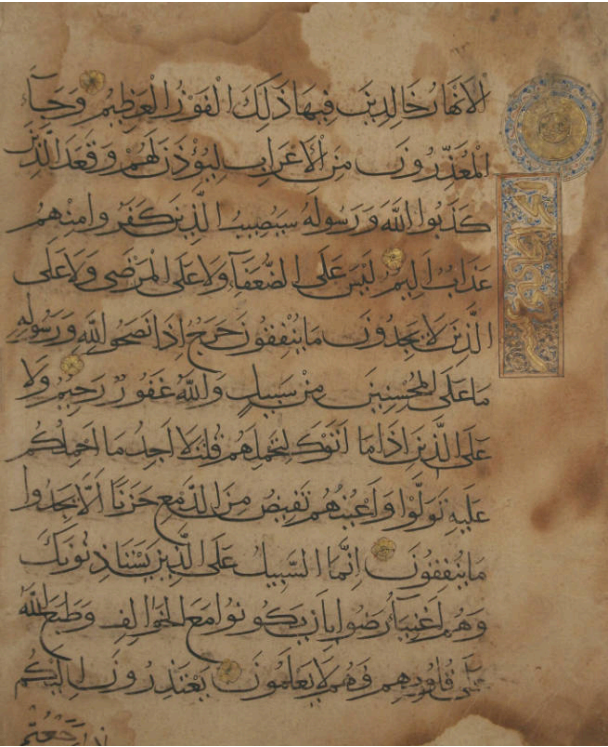 الانهار خالدين فيها ذلك الفوز العظيم وجاء
المعذرون من الاعراب ليؤذن لهم وقعد الذين
كذبوا الله ورسوله سيصيب الذين كفروا منهم
عذاب اليم ليس على الضعفاء ولا على المرضى ولا على
الذين لا يجدون ما ينفقون حرج اذا نصحوا لله ورسوله
ما على المحسنين من سبيل والله غفور رحيم ولا
على الذين اذا ما اتوك لتحملهم قلت لا اجد ما احملكم
عليه تولوا واعينهم تفيض من الدمع حزنا الا يجدوا
ما ينفقون انما السبيل على الذين يستاذنونك
وهم اغنياء رضوا بان يكونوا مع الخوالف وطبع الله
على قلوبهم فهم لا يعلمون يعتذرون اليكم
اذا رجعتم